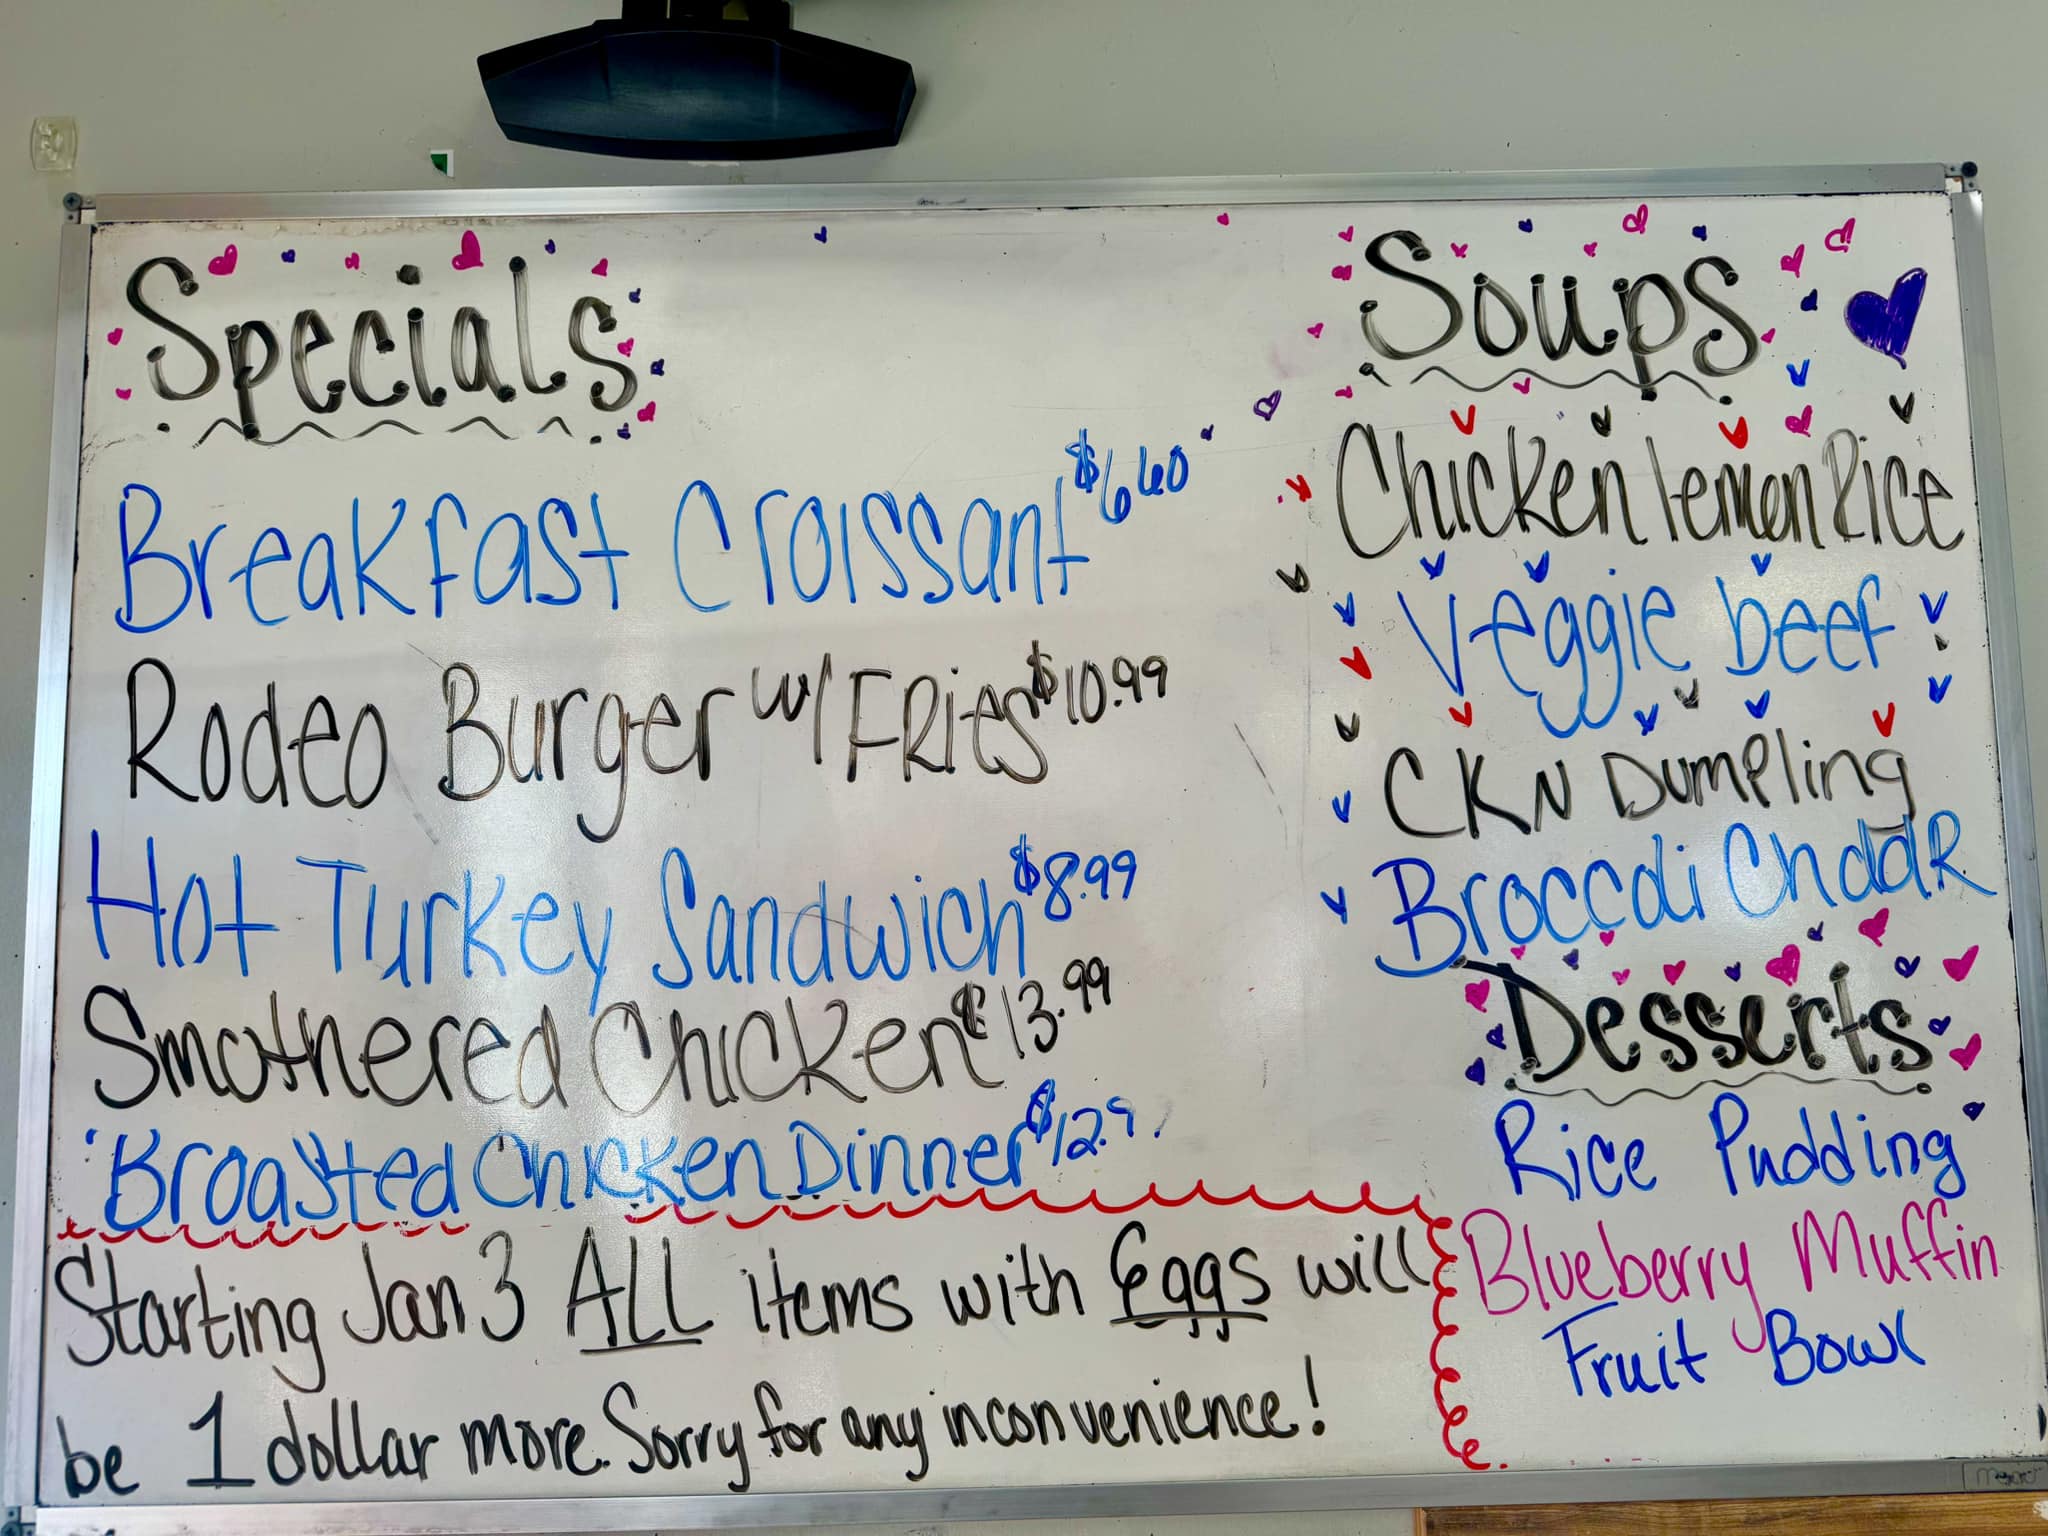 Specials
Breakfast Croissant $6.60
Rodeo Burger w/ FRies $10.99
Hot Turkey Sandwich $8.99
Smothered Chicken $13.99
Broasted Chicken Dinner $12.9
Starting Jan 3 ALL items with Eggs will
be 1 dollar more. Sorry for any inconvenience!
Soups
Chicken lemon Rice
Veggie beef
CKN DUMPling
Broccoli ChddR
Desserts
Rice Pudding
Blueberry Muffin
Fruit Bowl